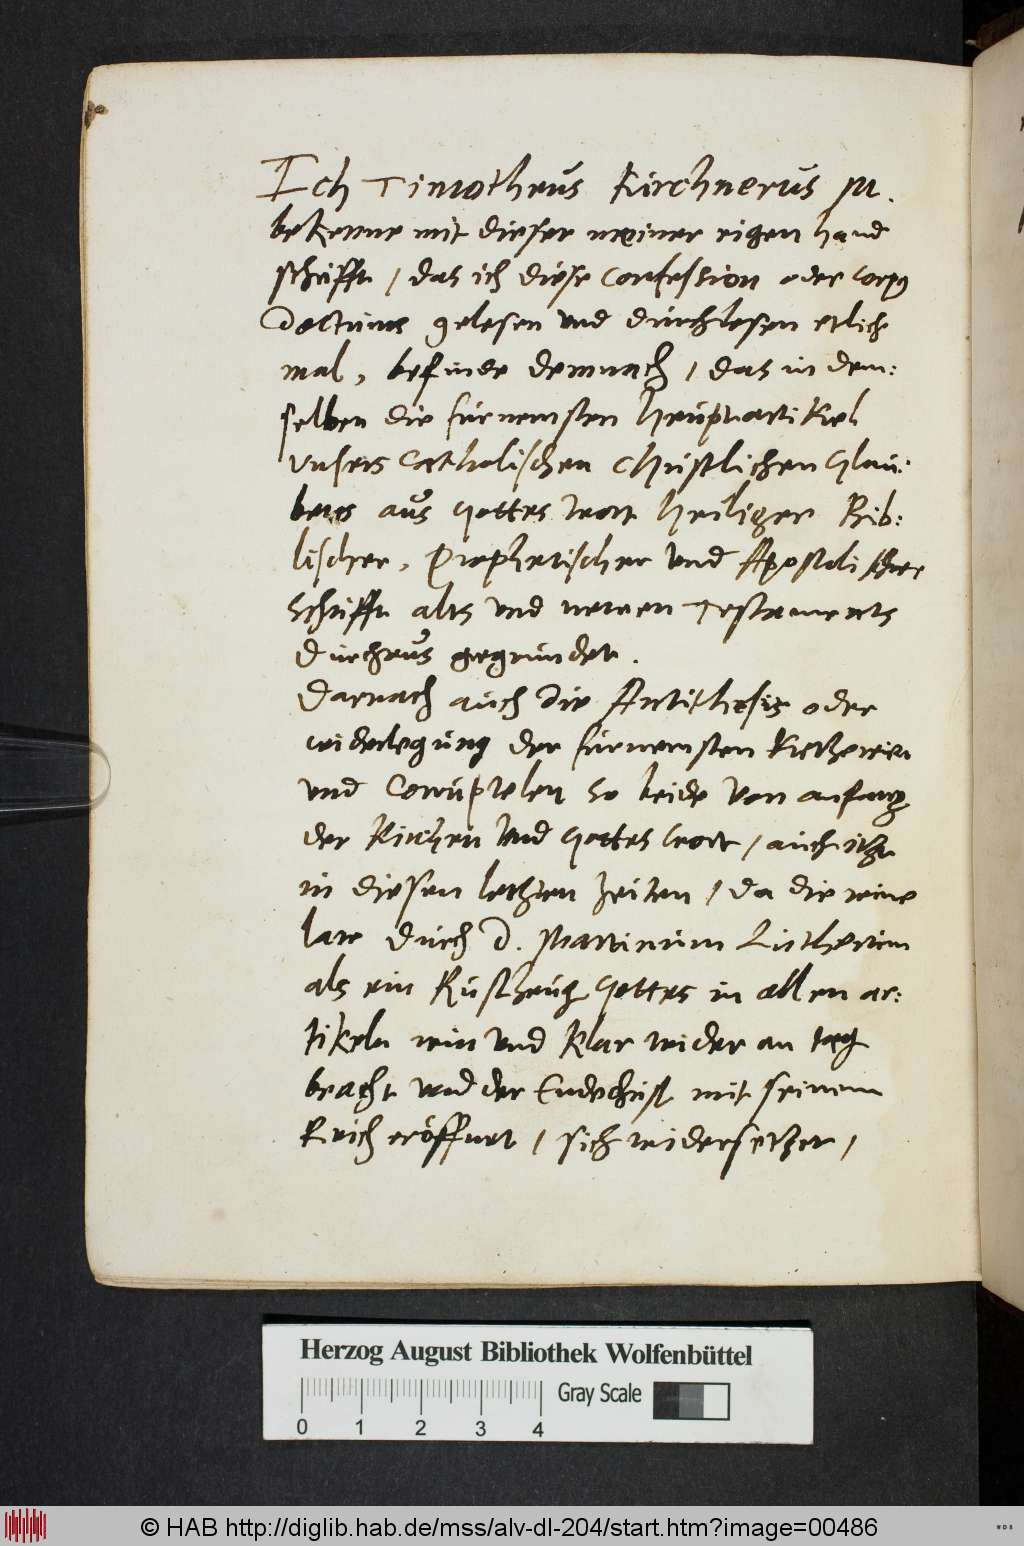 Ich Timotheus Kirchnerus M.
bekenne mit dieser meiner eigen hand
schrifft / das ich diese Confession oder Corpus
Doctrinae gelesen vnd durchlesen etlich
mal, befinde demnach / das in dem:
selben die fürnemsten heuptartikel
vnsers Catholischen Christlichen Glau:
bens aus Gottes wort heiliger Bib:
lischer, Prophetischer vnd Apostolischer
schrifft alts vnd newen Testaments
durchaus gegründet.
Darnach auch die Antithesis oder
widerlegung der fürnemsten Ketzereien
vnd Corruptelen so beide von anfang
der Kirchen vnd Gottes wort / auch itzt
in diesen letzten zeiten / da die reine
lare durch D. Martinum Lutherum
als ein Rustzeug Gottes in allen ar:
tikeln rein vnd klar wider an tag
bracht vnd der Endechrist mit seinem
Reich eröffnet / sich widersetzet /
Herzog August Bibliothek Wolfenbüttel
Gray Scale
0 1 2 3 4
© HAB http://diglib.hab.de/mss/alv-dl-204/start.htm?image=00486